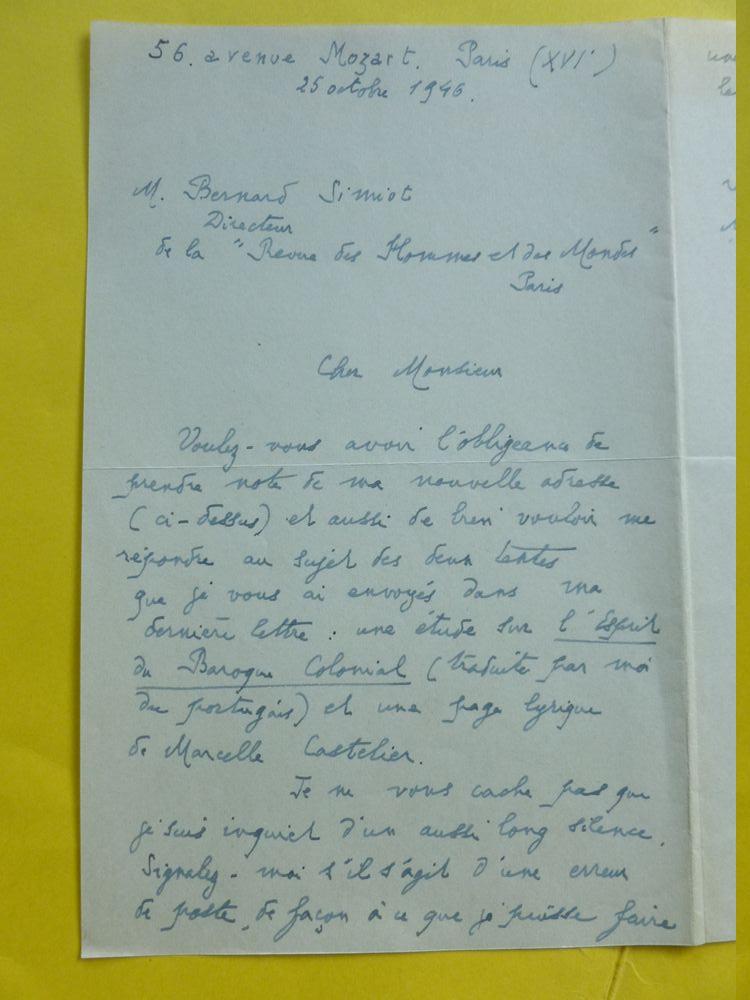 56. avenue Mozart. Paris (XVIe)
25 octobre 1946.
M. Bernard Simiot
Directeur
de la "Revue des Hommes et des Mondes"
Paris
Cher Monsieur
Voulez-vous avoir l'obligeance de
prendre note de ma nouvelle adresse
(ci-dessus) et aussi de bien vouloir me
répondre au sujet des deux textes
que je vous ai envoyés dans ma
dernière lettre : une étude sur l'Esprit
du Baroque Colonial (traduite par moi
du portugais) et une page lyrique
de Marcelle Castelier.
Je ne vous cache pas que
je suis inquiet d'un aussi long silence.
Signalez-moi s'il s'agit d'une erreur
de poste, de façon à ce que je puisse faire